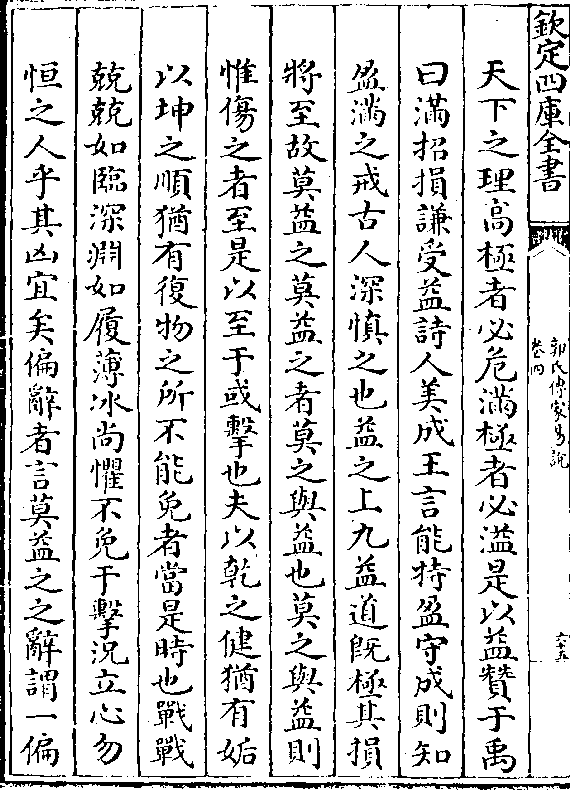 欽定四庫全書
郭氏傳家易說
卷四
六十五
天下之理高極者必危滿極者必溢是以益贊于禹
曰滿招損謙受益詩人美成王言能持盈守成則知
盈滿之戒古人深慎之也益之上九益道既極其損
將至故莫益之莫益之者莫之與益也莫之與益則
惟傷之者至是以至于或擊也夫以乾之健猶有姤
以坤之順猶有復物之所不能免者當是時也戰戰
兢兢如臨深淵如履薄冰尚懼不免于擊況立心勿
恒之人乎其凶宜矣偏辭者言莫益之之辭謂一偏